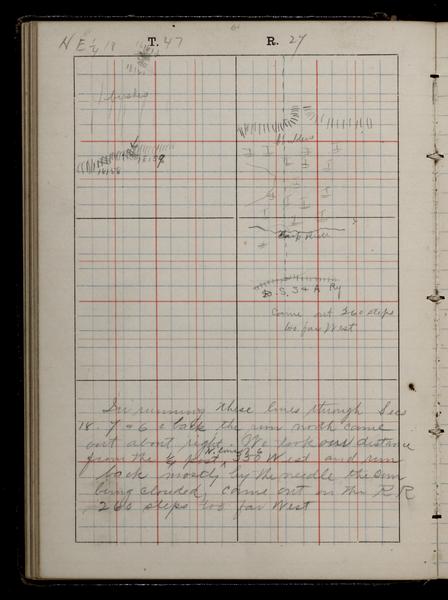 NE 1/4 18 T. 47 R. 27
bushes
16158
16159
D. S. S & A Ry
Came out 260 steps
too far West
In running these lines through Secs
18. 7 & 6 & back the run north came
out about right. We took our distance
N. line of 6
from the 1/4 post 350 West and run
back mostly by the needle the sun
being clouded, came out on the R R
260 steps too far West